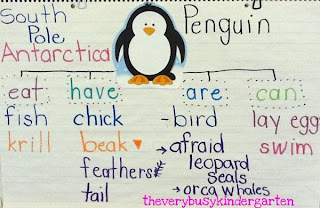 South
Pole
Antarctica
Penguin
eat
fish
krill
have
chick
beak
feathers
tail
are
-bird
→afraid
leopard
seals
→orca whales
can
lay egg
swim
theverybusykindergarten